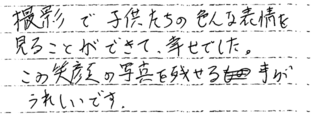 撮影で子供たちの色んな表情を
見ることができて、幸せでした。
この笑顔の写真を残せる事が
うれしいです.